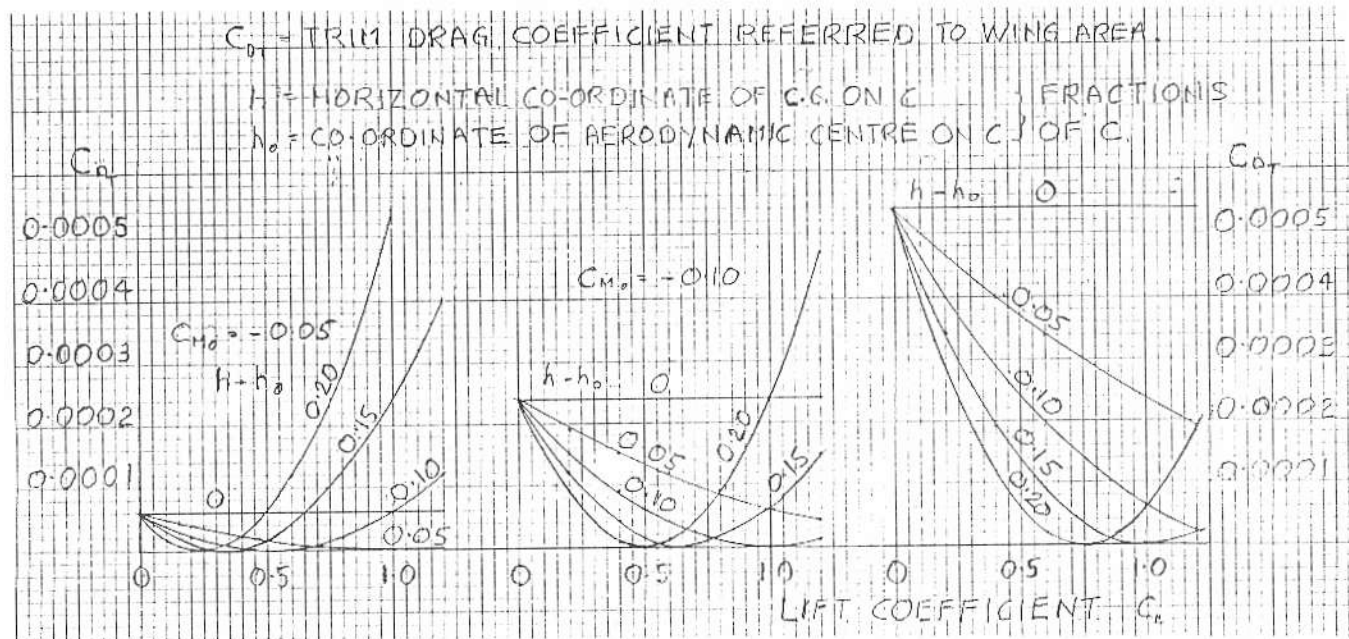 C_DT = TRIM DRAG COEFFICIENT REFERRED TO WING AREA.
H = HORIZONTAL CO-ORDINATE OF C.G. ON C } FRACTIONS
h₀ = CO-ORDINATE OF AERODYNAMIC CENTRE ON C } OF C.
C_DT
0.0005
0.0004
0.0003
0.0002
0.0001
C_M₀ = -0.05
h-h₀
0.20
0.15
0.10
0
0.05
0 0.5 1.0
C_M₀ = -0.10
h-h₀ 0
0.05
0.20
0.10
0.15
0 0.5 1.0
h-h₀ 0
0.05
0.10
0.15
0.20
0 0.5 1.0
C_DT
0.0005
0.0004
0.0003
0.0002
0.0001
LIFT COEFFICIENT C_L